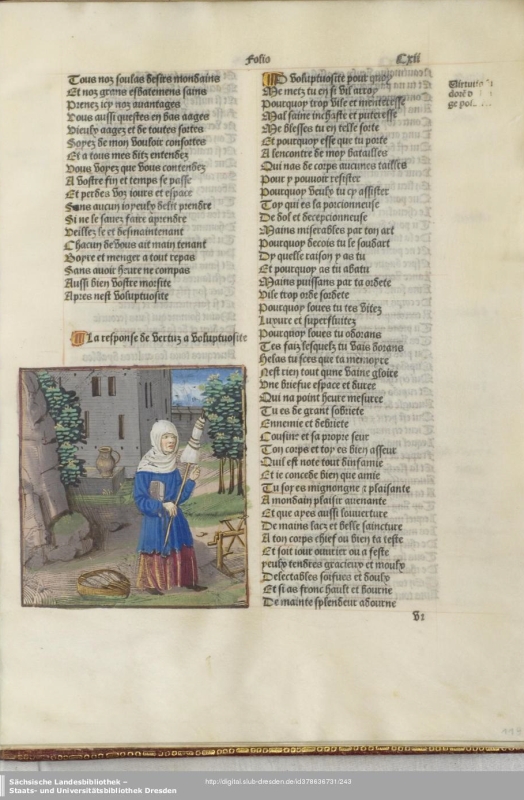 Folio Cxii
Tous noz soulas desirs mondains
Et noz grans esbatemens sains
Prenez icy noz auantages
Vous aussi questes en bas aages
Vieulx aagez et de toutes sortes
Soyez de mon vouloir consortes
Et a tous mes ditz entendez
Vous voyez que vous contendez
A vostre fin et temps se passe
Et perdes voz iours et espace
Sans aucun ioyeulx delit prendre
Si ne le sauez faire aprendre
Veillez le et desmaintenant
Chacun de vous ait main tenant
Boyre et menger a tout repas
Sans auoir heure ne compas
Aussi bien vostre morsite
Apres nest voluptuosite
La response de vertuz a voluptuosite
O voluptuosite pour quoy
Me metz tu en si vil arroy
Pourquoy trop vile et menteresse
Mal saine inchaste et puteresse
Me blesses tu en telle sorte
Et pourquoy esse que tu porte
A lencontre de moy batailles
Qui nas de corps aucunes tailles
Pour y pouuoir resister
Pourquoy veulx tu cy assister
Toy qui es la porcionneuse
De dol et decepcionneuse
Mains miserables par ton art
Pourquoy decois tu le soudart
Dy quelle raison y as tu
Et pourquoy as tu abatu
Mains puissans par ta ordete
Vile trop orde sordete
Pourquoy loues tu tes vitez
Luxure et superfluitez
Pourquoy loues tu odorans
Tes faiz lesquelz tu vais dorans
Helas tu scez que ta memoyre
Nest rien tout qune vaine gloire
Vne briefue espace et duree
Qui na point heure mesuree
Tu es de grant sobriete
Ennemie et debriete
Cousine et sa propre seur
Ton corps et toy es bien asseur
Quil est note tout dinfamie
Et ie concede bien que amie
Tu soyes mignongne et plaisante
A mondain plaisir auenante
Et que ayes aussi louuerture
De mains lacz et belle saincture
A ton corps chief ou bien ta teste
Et soit iour ouurier ou a feste
yeulx tendres gracieux et moulx
Delectables soifues et doulx
Et si as fronc hault et bourne
De mainte splendeur adourne
Sächsische Landesbibliothek –
Staats- und Universitätsbibliothek Dresden
http://digital.slub-dresden.de/id378636731/243